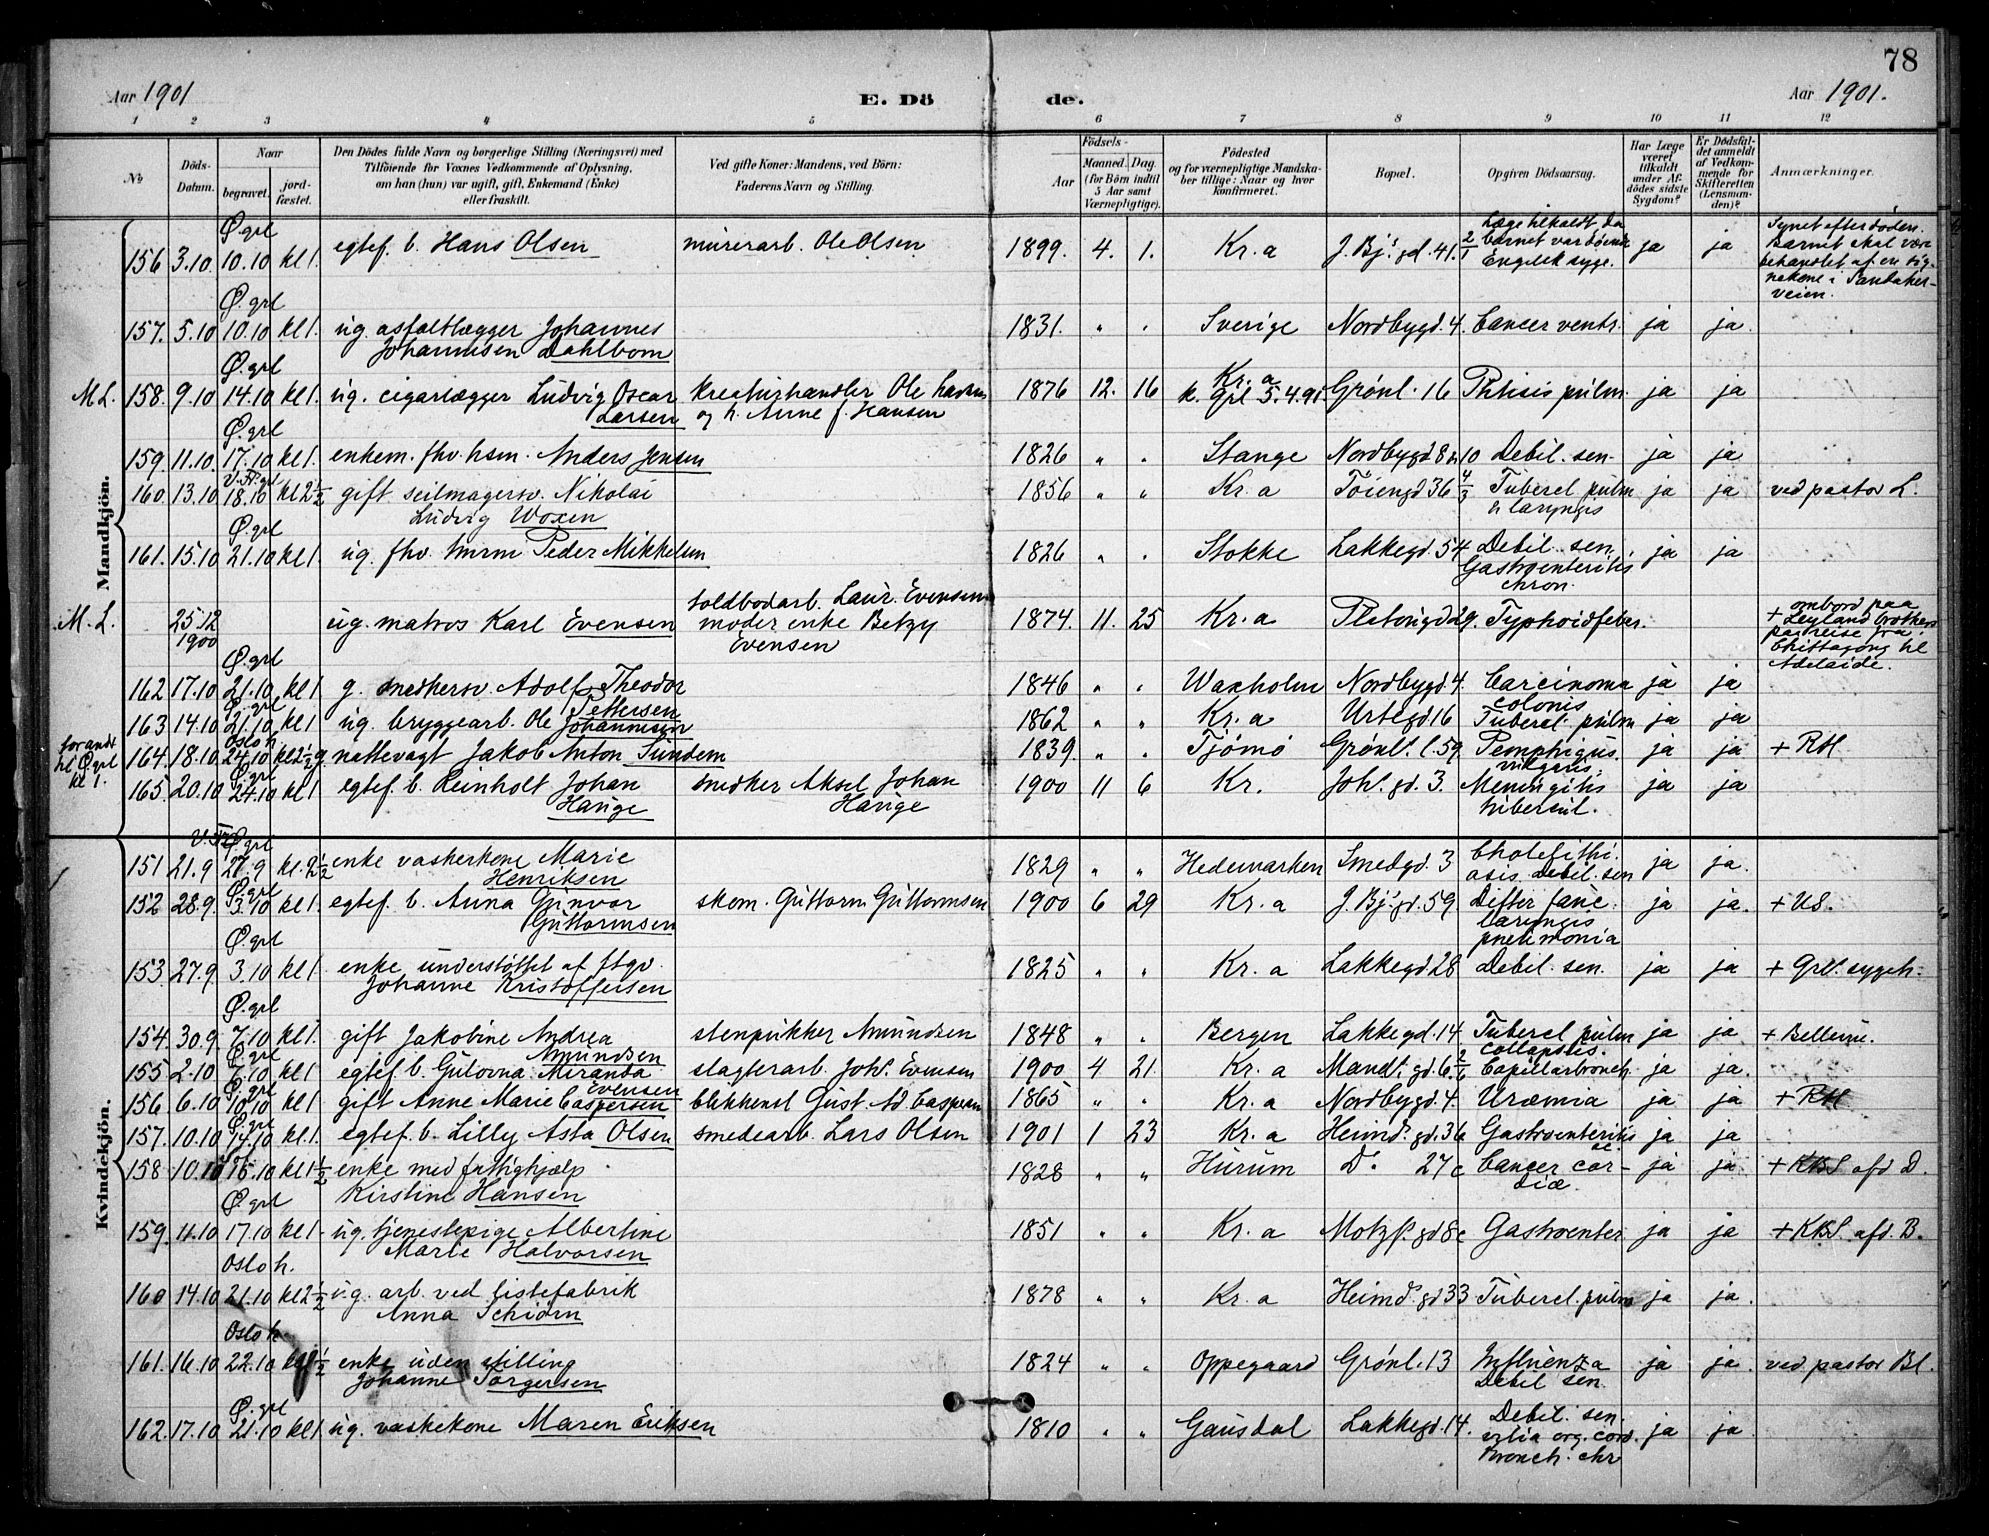 78
Aar 1901
E. Dö de.
Aar 1901.
1 2 3 4 5 6 7 8 9 10 11 12
№
Döds-Datum.
Naar
begravet.
jord-fæstet.
Den Dödes fulde Navn og borgerlige Stilling (Næringsvei) med
Tilföiende for Voxnes Vedkommende af Oplysning,
om han (hun) var ugift, gift, Enkemand (Enke)
eller fraskilt.
Ved gifte Koner: Mandens, ved Börn:
Faderens Navn og Stilling.
Födsels-
Aar
Maaned. Dag.
(for Börn indtil
5 Aar samt
Værnepligtige).
Födested
og for værnepligtige Mandska-
ber tillige: Naar og hvor
Konfirmeret.
Bopæl.
Opgiven Dödsaarsag.
Har Læge
været
tilkaldt
under Af-
dödes sidste
Sygdom?
Er Dödsfal-
det anmeldt
af Vedkom-
mende for
Skifteretten
(Lensman-
den)?
Anmærkninger.
Mandkjön.
Ø. grl
156 3.10 10.10 kl 1. egtef. b. Hans Olsen murerarb. Ole Olsen 1899. 4. 1. Kr.a J. Bj.s gd. 41. 2/1 Læge tilkaldt da barnet var døende Engelsk syge. ja ja Synet efter døden. Barnet skal være behandlet af en sig-nekone i Sandaker-veien.
Ø. grl
157. 5.10 10.10 kl 1. ug. asfaltlægger Johannes 1831. " . Sverige Nordbygd. 4. Cancer ventr. ja ja.
Johannisen Dahlbom
Ø. grl
M L. 158. 9.10 14.10 kl 1. ug. cigarlægger Ludvig Oscar kreaturhandler Ole Larsen 1876 12. 16 Kr. a Grønl. 16 Phtisis pulm. ja ja
Larsen og h. Anne f. Hansen k. Grl 5.4.91
Ø. grl
159. 11.10. 17.10 kl 1. enkem. fhv. hsm. Anders Jensen 1826 " . Stange Nordbygd. 8 10 Debil. sen. ja ja
160. 13.10 18.10 kl 2½ gift seilmagersv. Nikolai 1856 " " Kr. a Töiengd 36 4/3 Tubercl pulm ja ja ved pastor L.
Ludvig Woxen & laryngis
Ø. grl
161. 15.10 21.10 kl 1. ug. fhv. Peder Mikkelsen 1826 " . Stokke Lakkegd. 54 Debil. sen. ja ja
Gastroenteritis
chron.
M. L. 25.12 1900 ug. matros Karl Evensen toldbodarb. Laur. Evensen 1874. 11. 25 Kr. a Platougd 29. Typhoidfeber.
moder enke Betzy
Evensen
+ ombord paa
Leyland brothers
paa reise fra
Chittagong til
Adelaide.
Ø. grl
162 17.10 21.10 kl 1 g. snedkersv. Adolf Theodor 1846 " . Waxholm Nordbygd. 4. Carcinoma ja ja
Pettersen colonis
Ø. grl
163 14.10 21.10 kl 1 ug. bryggearb. Ole Johannesen 1862 " " Kr. a Urtegd 16 Tubercl. pulm ja ja
for andt til Ø grl kl 1.
Oslo h.
164. 18.10. 24.10 kl 2½ g. nattevagt Jakob Anton Sundem 1839. " . Tjømø Grønl. l. 59. Pemphigus ja ja + RH.
vulgaris.
Ø. grl
165. 20.10 24.10 kl 1 egtef. b. Reinholt Johan snedker Aksel Johan 1900 11 6 Kr. Joh. gd. 3. Meningitis ja ja
Hauge Hauge tubercul.
Kvindekjön.
151 21.9 27.9 kl. 2½ enke vaskerkone Marie 1829 " " Hedemarken Smedgd. 3 Cholelithi- ja ja.
Henriksen asis. Debil. sen
Ø. grl
152 28.9. 3.10 kl 1. egtef. b. Anna Gunvor skom. Guttorm Guttormsen 1900 6 29 Kr. a J. Bj.s gd. 59. Difter fauc. ja ja. + US.
Guttormsen laryngis
pneumonia
Ø. grl
153. 27.9. 3.10 kl 1. enke understøttet af ftgv. 1825 " " Kr. a Lakkegd 28 Debil. sen. ja ja + Grl. sygeh.
Johanne Kristoffersen
Ø. grl
154. 30.9. 7.10 kl 1. gift Jakobine Andrea stenpukker Amundsen 1848 " . Bergen Lakkegd. 14. Tubercl pulm ja ja + Bellevue.
Amundsen collapsus.
Ø. grl
155 2.10 7.10 kl 1 egtef. b. Gulovna Miranda slagterarb. Joh. Evensen 1900 4 21. Kr. a Mandt. gd. 6. 2/6 Capillarbronch. ja ja.
Evensen
Ø. grl
156 6.10 10.10 kl 1 gift Anne Marie Caspersen blikkensl Gust Ad Caspersen 1865 " . Kr. a Nordbygd. 4. Uræmia ja ja + RH
Ø. grl
157. 10.10 14.10 kl. 1. egtef. b. Lilly Asta Olsen smedearb. Lars Olsen 1901 1 23 Kr. a Heimd. gd. 36 Gastroenteritis ja ja
158 10.10 15.10 kl 1½ enke med fattighjælp 1828 " " Hurum Do 27 c Cancer car- ja ja + KBS afd D.
Kirstine Hansen diæ.
Ø. grl
159. 11.10 17.10 kl 1. ug. tjenestepige Albertine 1851 " " Kr. a Motzf. gd 8c Gastroenter ja ja + KBS afd. B.
Marie Halvorsen
Oslo h.
160 14.10 21.10 kl 2½ ug. arb. ved listefabrik 1878 " " Kr. a Heimd. gd 33 Tubercl. pulm ja ja.
Anna Schiørn
Oslo h
161. 16.10 22.10 ½ enke uden stilling 1824 " " Oppegaard Grønl. 13 Influenza ja ja. ved pastor Bl.
Johanne Torgersen Debil sen.
Ø. grl
162. 17.10 21.10 kl 1. ug. vaskekone Maren Eriksen 1810 " " Gausdal Lakkegd. 14. Debil. sen. ja ja.
vitia org. cord.
Bronch. chr